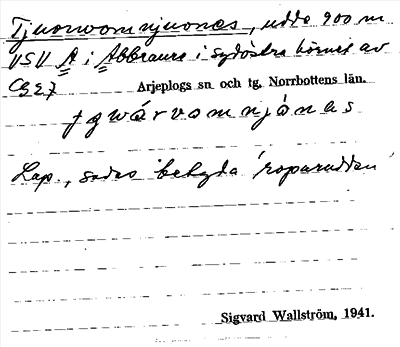 Tjuorvoomnjuones, udde 900 m
VSV A i Abbraure i sydöstra hörnet av
CB27 Arjeplogs sn och tg. Norrbottens län.
tgwárvomnjónes
Lap., sades betyda 'roparudden'
Sigvard Wallström, 1941.